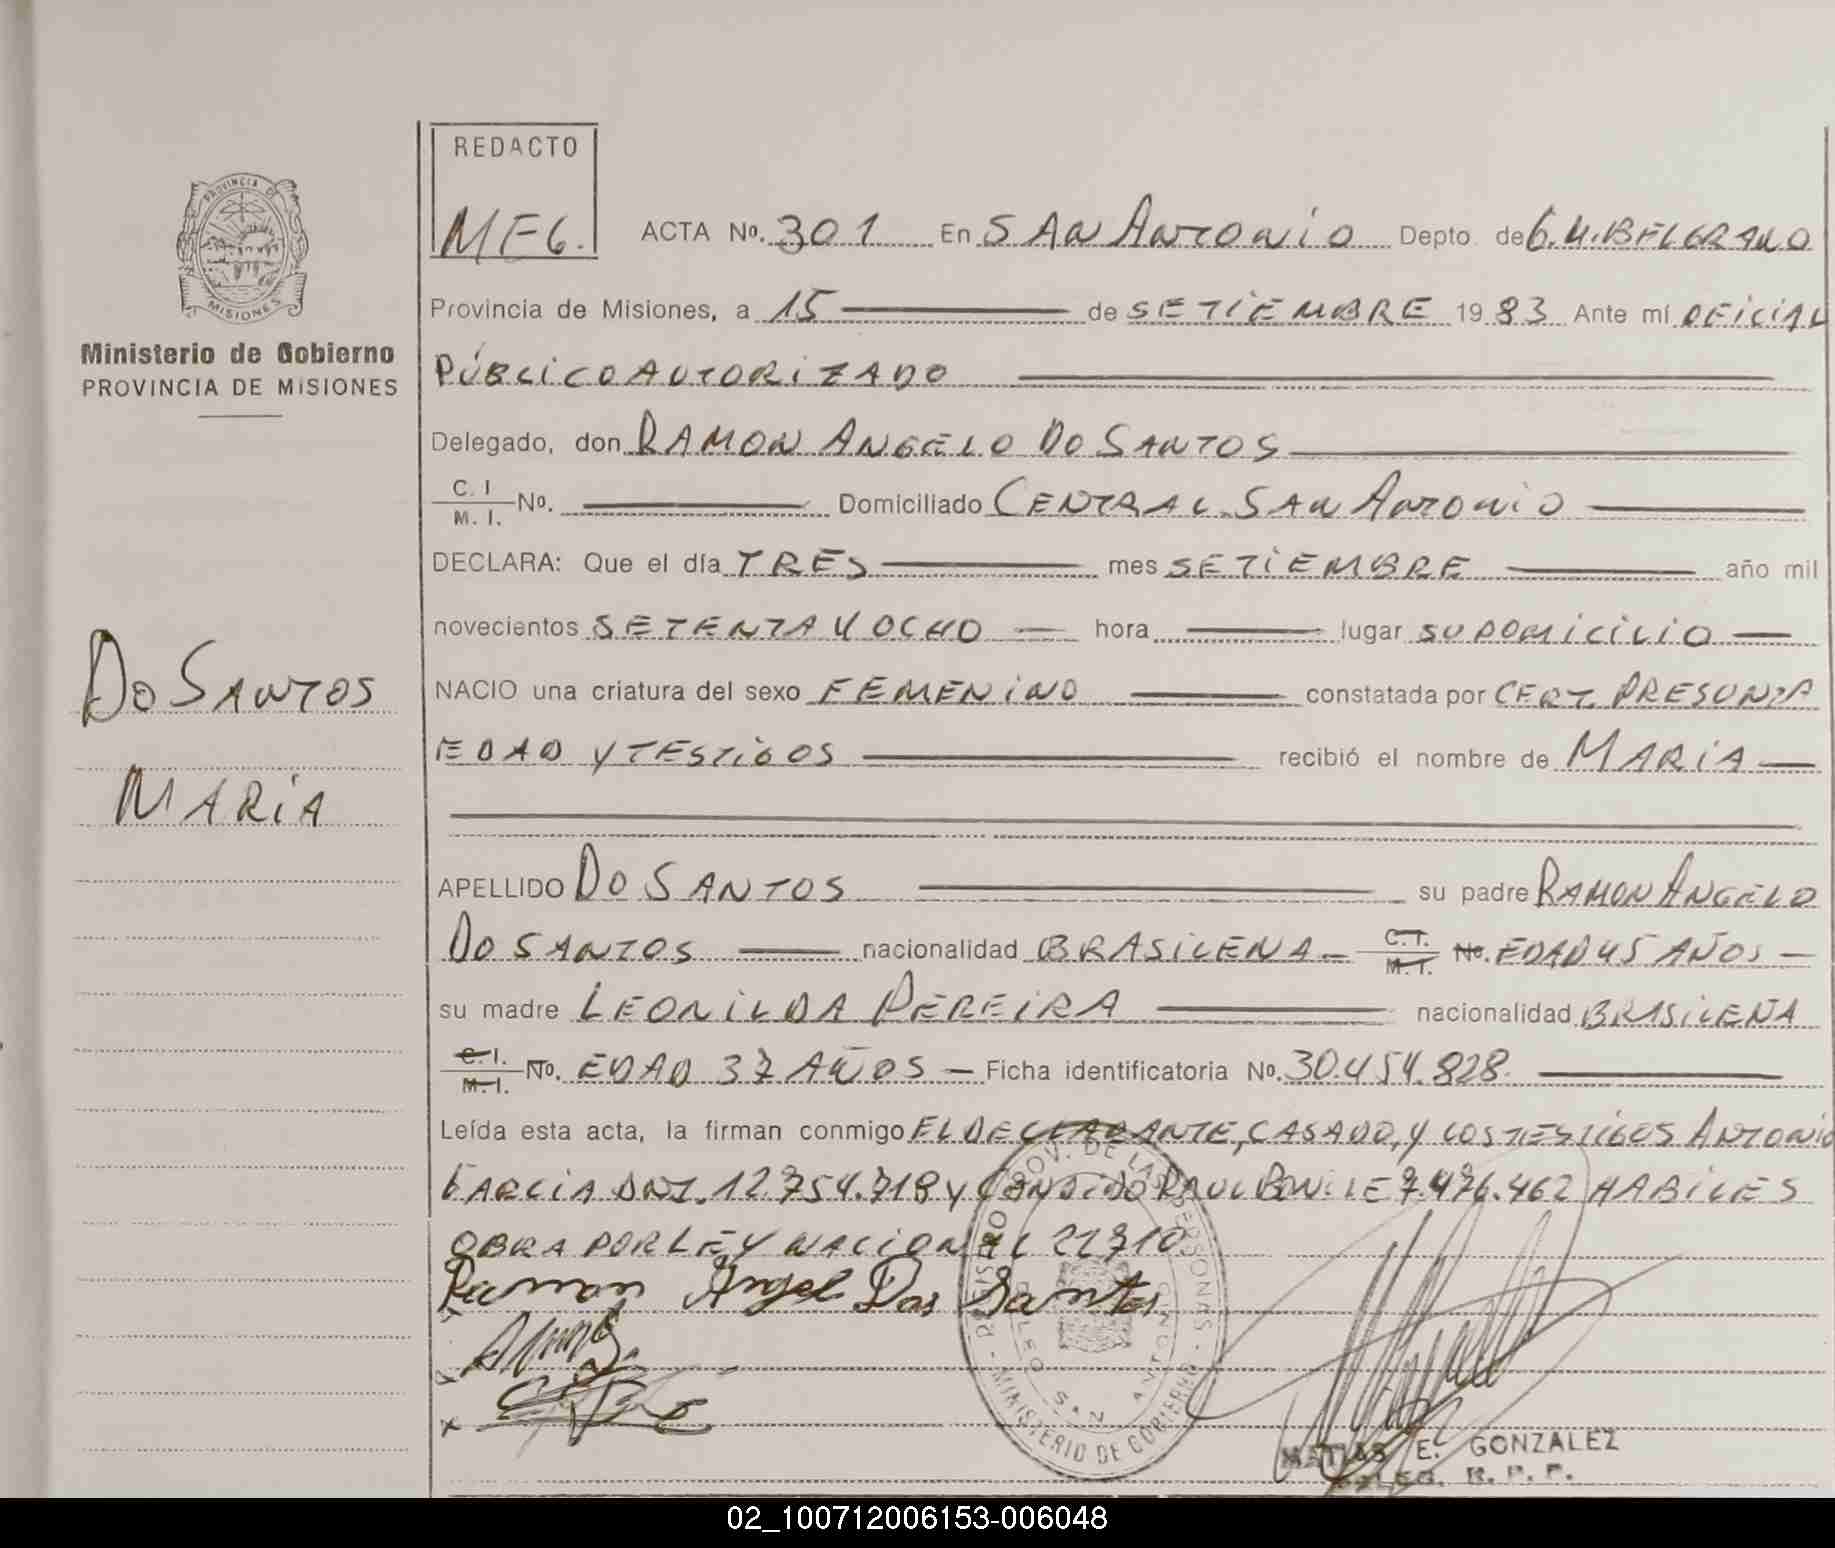 REDACTO
MEG.
PROVINCIA DE
MISIONES
Ministerio de Gobierno
PROVINCIA DE MISIONES
DO SANTOS
MARÍA
ACTA No. 301 En SAN ANTONIO Depto. de G.M.BELGRANO
Provincia de Misiones, a 15 de SETIEMBRE 1983 Ante mí OFICIAL
PÚBLICO AUTORIZADO
Delegado, don RAMON ANGELO DO SANTOS
C. I. M. I. No. Domiciliado CENTRAL SAN ANTONIO
DECLARA: Que el día TRES mes SETIEMBRE año mil
novecientos SETENTA Y OCHO hora lugar SU DOMICILIO
NACIO una criatura del sexo FEMENINO constatada por CERT. PRESUNTA
EDAD Y TESTIGOS recibió el nombre de MARIA
APELLIDO DO SANTOS su padre RAMON ANGELO
DO SANTOS nacionalidad BRASILENA C. I. M. I. No. EDAD 45 AÑOS
su madre LEONILDA PEREIRA nacionalidad BRASILEÑA
C. I. M. I. No. EDAD 37 AÑOS Ficha identificatoria No. 30.454.828
Leída esta acta, la firman conmigo EL DECLARANTE, CASADO, Y LOS TESTIGOS ANTONIO
GARCIA DNI. 12.754.718 Y CANDIDO RAUL LE 7.476.462 HABILES
OBRA POR LEY NACIONAL 22710
Ramon Angel Dos Santos
REGISTRO PROV. DE LAS PERSONAS
MINISTERIO DE GOBIERNO
SAN ANTONIO
MATIAS E. GONZALEZ
R. P. P.
02_100712006153-006048